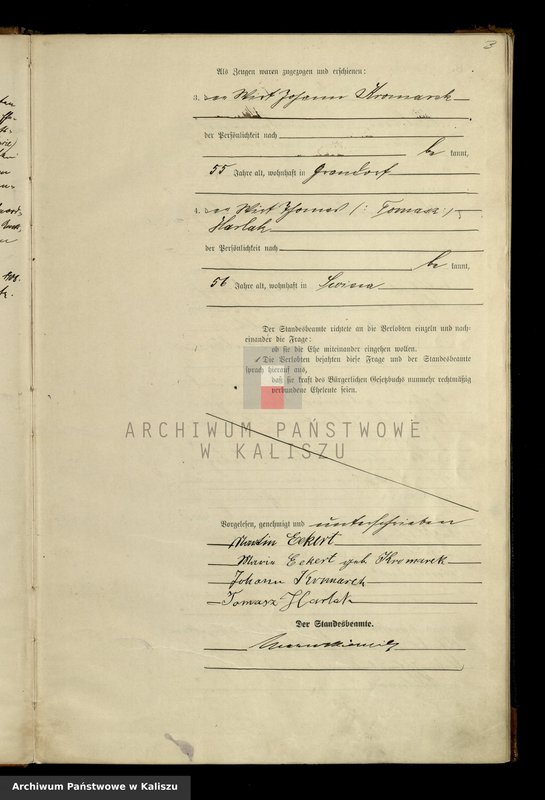 3
Als Zeugen waren zugezogen und erschienen:
3. der Wirt Johann Kromarek
der Persönlichkeit nach
be kannt,
55 Jahre alt, wohnhaft in Grandorf
4. der Wirt Thomas (: Tomasz :)
Harlak
der Persönlichkeit nach
be kannt,
56 Jahre alt, wohnhaft in
Der Standesbeamte richtete an die Verlobten einzeln und nach-
einander die Frage:
ob sie die Ehe miteinander eingehen wollen.
Die Verlobten bejahten diese Frage und der Standesbeamte
sprach hierauf aus,
daß sie kraft des Bürgerlichen Gesetzbuchs nunmehr rechtmäßig
verbundene Eheleute seien.
ARCHIWUM PAŃSTWOWE
W KALISZU
Vorgelesen, genehmigt und unterschrieben
Martin Eckert
Maria Eckert geb. Kromarek
Johann Kromarek
Tomasz Harlak
Der Standesbeamte.
Archiwum Państwowe w Kaliszu